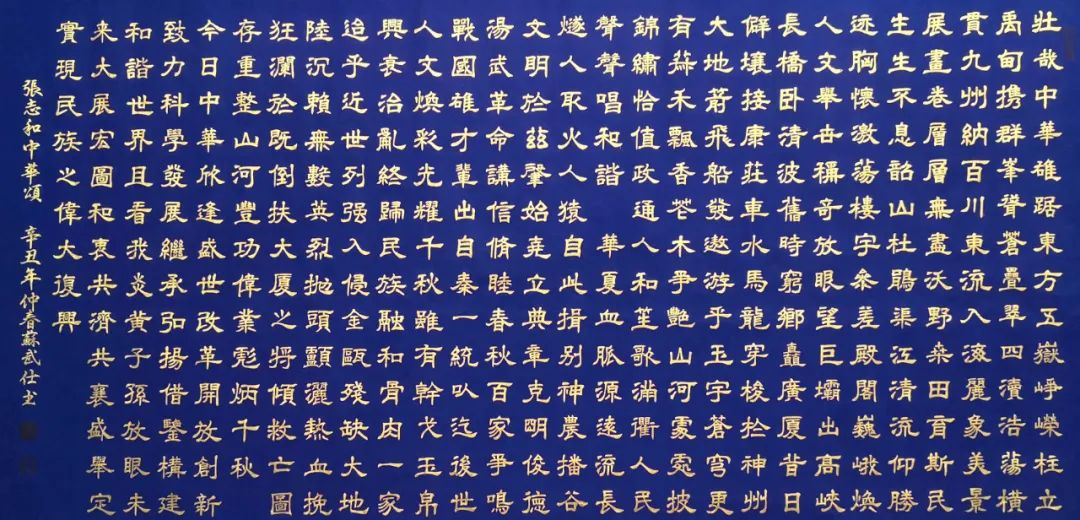 壯哉中華雄踞東方五嶽崢嶸柱立
禹甸攜群峯聳蒼疊翠四瀆浩蕩橫
貫九州納百川東流入海麗象美景
展畫卷層層無盡沃野桑田育斯民
生生不息韶山杜鵑渠江清流仰勝
迹胸懷激蕩樓宇參差殿閣巍峨煥
人文舉世稱奇放眼望巨壩出高峽
長橋臥清波舊時窮鄉矗廣廈昔日
僻壤接康莊車水馬龍穿梭於神州
大地箭飛船發遨游乎玉宇蒼穹更
有蘇禾飄香花木爭艷山河處處披
錦繡恰值政通人和笙歌滿衢人民
聲聲唱和諧 華夏血脈源遠流長
燧人取火人猿自此揖别神農播谷
文明於茲肇始堯立典章克明俊德
湯武革命講信脩睦春秋百家爭鳴
戰國雄才輩出自秦一統以迄後世
人文煥彩光耀千秋雖有幹戈玉帛
興衰治亂終歸民族融和骨肉一家
迨乎近世列强入侵金甌殘缺大地
陸沉賴無數英烈抛頭顱灑熱血挽
狂瀾於既倒扶大廈之將傾救亡圖
存重整山河豐功偉業彪炳千秋
今日中華欣逢盛世改革開放創新
致力科學發展繼承弘揚借鑒構建
和諧世界且看我炎黃子孫放眼未
来大展宏圖和衷共濟共襄盛舉定
實現民族之偉大復興
張志和中華頌 辛丑年仲春蘇武仕書